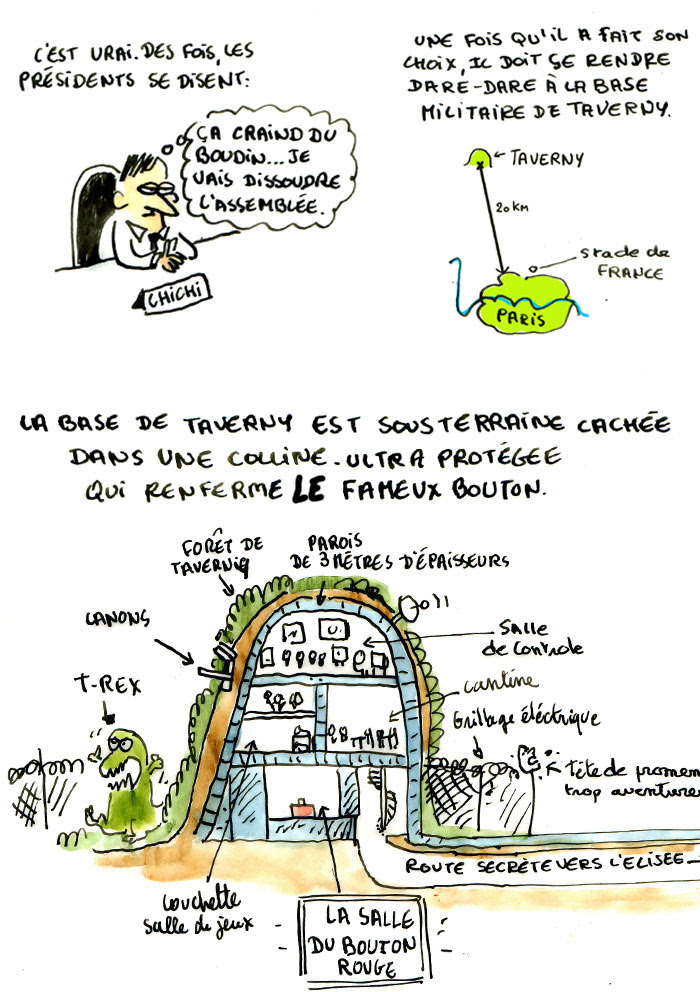 C'EST VRAI. DES FOIS, LES
PRÉSIDENTS SE DISENT:
ÇA CRAIND DU
BOUDIN... JE
VAIS DISSOUDRE
L'ASSEMBLÉE.
CHICHI
UNE FOIS QU'IL A FAIT SON
CHOIX, IL DOIT SE RENDRE
DARE-DARE À LA BASE
MILITAIRE DE TAVERNY.
TAVERNY
20 KM
stade de
FRANCE
PARIS
LA BASE DE TAVERNY EST SOUSTERRAINE CACHÉE
DANS UNE COLLINE. ULTRA PROTÉGÉE
QUI RENFERME LE FAMEUX BOUTON.
FORÊT DE
TAVERNIQ
PAROIS
DE 3 MÈTRES D'ÉPAISSEURS
CANONS
SALLE
de controle
T-REX
cantine
Grillage éléctrique
tête de promen
trop aventure
ROUTE SECRÈTE VERS L'ELISEE
couchette
salle de jeux
LA SALLE
DU BOUTON
ROUGE